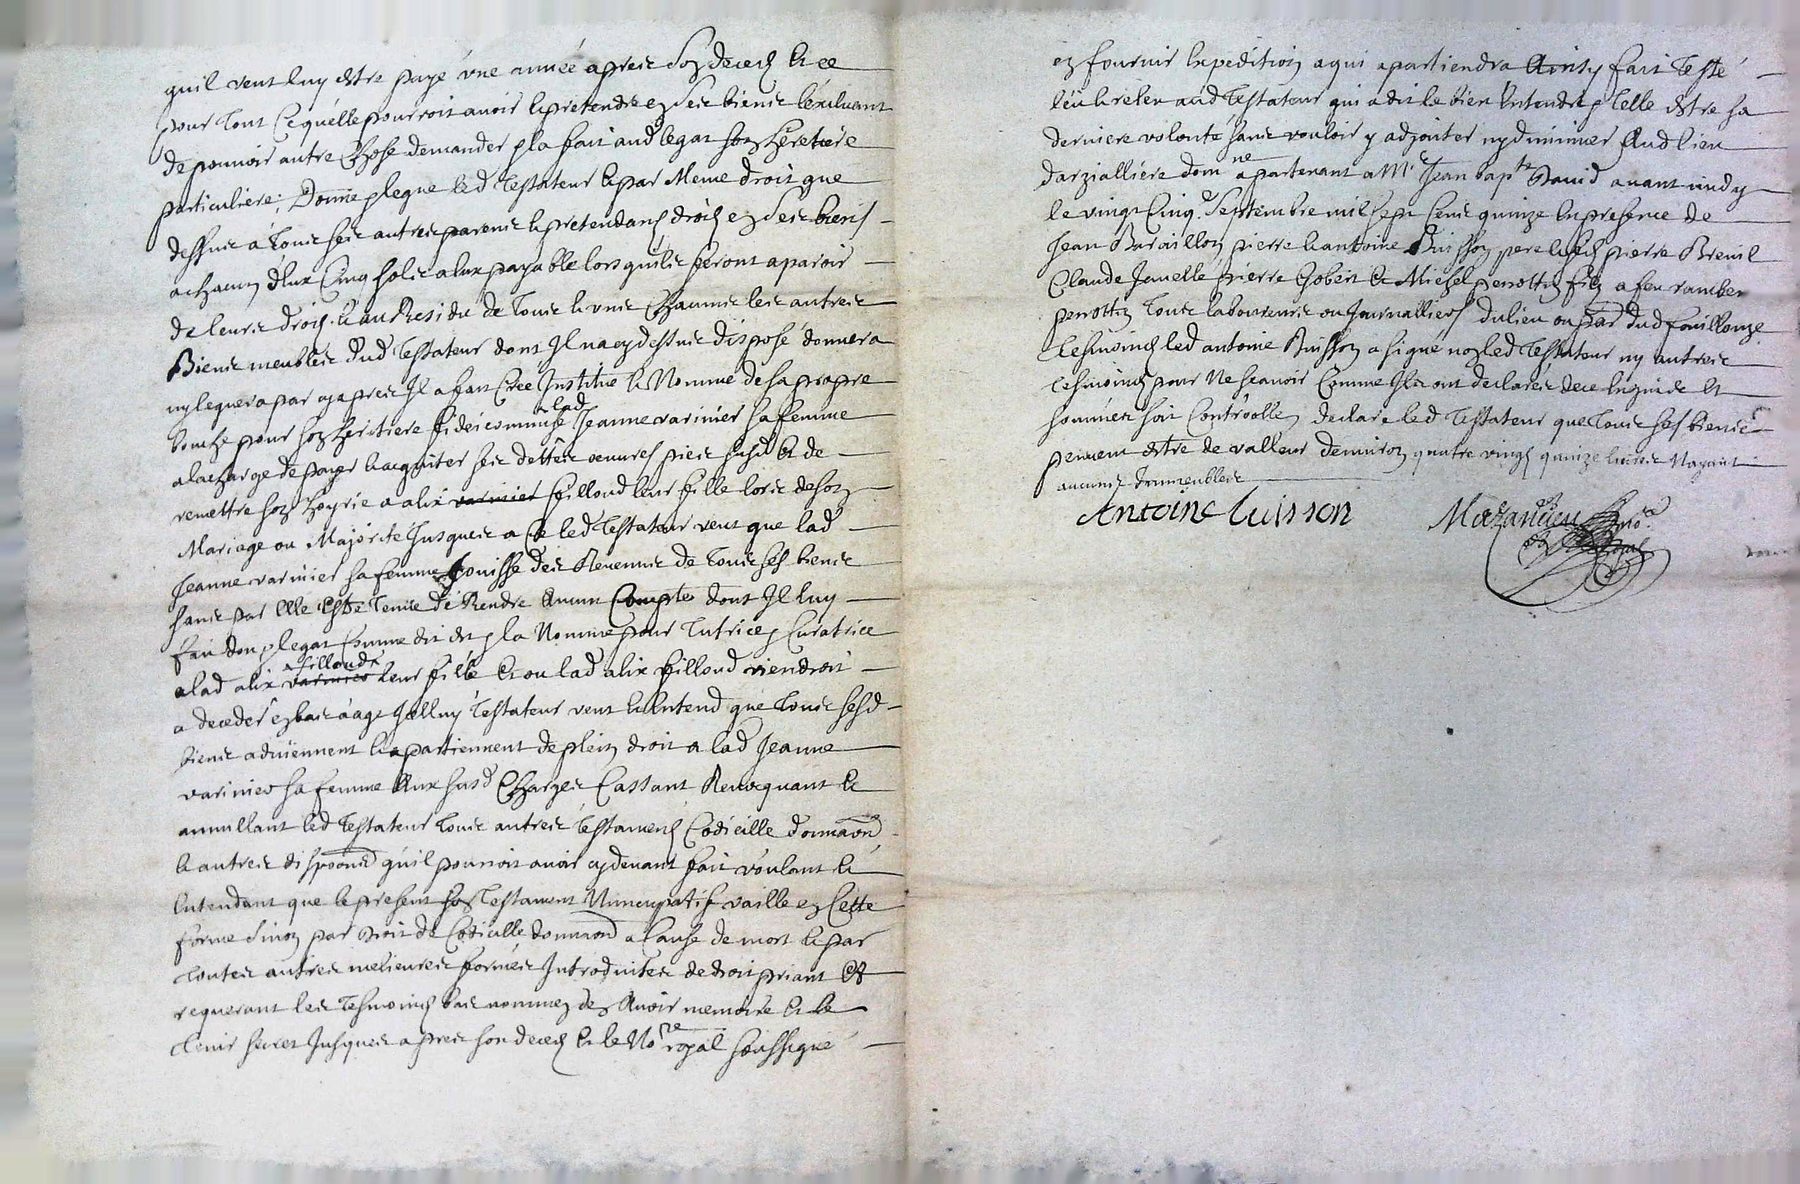 quil veut luy estre payé une année apres son deced et ce
pour tout ce quelle pourroit avoir et pretendre en ses biens lexcluant
de pouvoir autre chose demander et la fait aud legat son heretiere
particuliere; Donne et legue led Testateur et par meme droit que
dessus à tous ses autres parens et pretendans droits en ses biens
a chacun deux cinq sols a eux payable lors quils feront aparoir
de leurs droits. et au Residu de tous et uns chacuns les autres
Biens meubles dud Testateur dont Il na cy dessus disposé donnera
ny leguera par cy apres Il a fait Cree Institue et Nomme de sa propre
bouche pour son heritiere fideicommise lad Jeanne varinier sa femme
a la charge de payer et acquiter ses dettes œuvres pies susd et de
remettre son hoyrie a alix varinier filloud leur fille lors de son
Mariage ou Majorité Jusques a Ce led Testateur veut que lad
Jeanne varinier sa femme Jouisse des Revenus de tous ses biens
sans par elle estre tenue de Rendre aucun Comptes dont Il luy
fait don et legat Comme dit est et la Nomme pour tutrice et Curatrice
a lad alix varinier filloud leur fille et ou lad alix filloud viendroit
a deceder en bas âage Icelluy Testateur veut et entend que tous sesd
biens adviennent et apartiennent de plein droit a lad Jeanne
varinier sa femme Aux susd Charges Cassant Revocquant et
annullant led Testateur tous autres Testamens Codicille donnaond
et autres dispoond quil pourroit avoir cy devant fait voulant et
entendant que le present son Testament Nuncupatif vaille en Cette
forme sinon par droit de Codicille donnaond a cause de mort et par
toutes autres melieures formes Introduites de droit priant et
requerant les tesmoings bas nommez den avoir memoire et le
tenir secret Jusques apres son deced et le No.re royal soussigné
en fournir expedition a qui apartiendra Ainsy fait Testé
leu et releu aud Testateur qui a dit le bien entendre et telle estre sa
derniere volonté sans vouloir y adjouter ny diminuer Aud lieu
darzialliere domne apartenant a Mr. Jean bapte David avant midy
le vingt Cinq.e Septembre mil sept Cens quinze en presence de
Jean Buraillon pierre et antoine Buisson pere et fils pierre Breuil
Claude Jamelle pierre Gobert et Michel perrottin fils a feu ramber
perrottin tous laboureurs ou Journalliers du lieu ou par dud fouillouze
tesmoings led antoine Buisson a signé non led Testateur ny autres
tesmoings pour Ne scavoir Comme Ils ont declarés de ce enquis et
sommés soit Controollé, declare led Testateur que tous ses biens
peuvent estre de valleur denviron quatre vingt quinze livres Nayant
aucuns dimmeubles
Antoine buisson